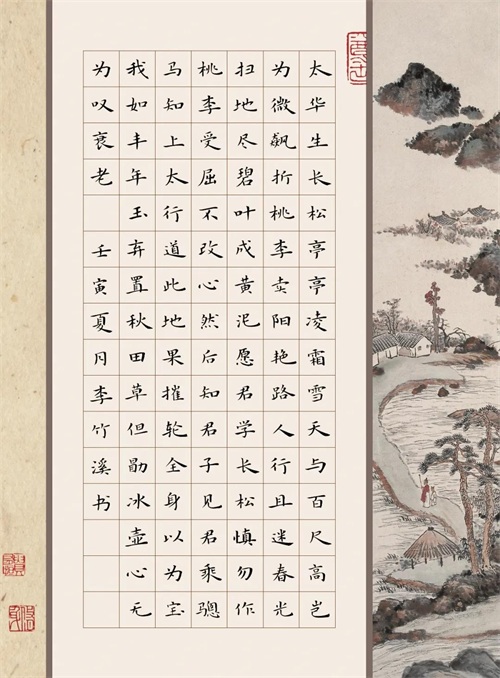 太华生长松亭亭凌霜雪天与百尺高岂
为微飙折桃李卖阳艳路人行且迷春光
扫地尽碧叶成黄泥愿君学长松慎勿作
桃李受屈不改心然后知君子见君乘骢
马知上太行道此地果摧轮全身以为宝
我如丰年玉弃置秋田草但勖冰壶心无
为叹衰老 壬寅夏月李竹溪书